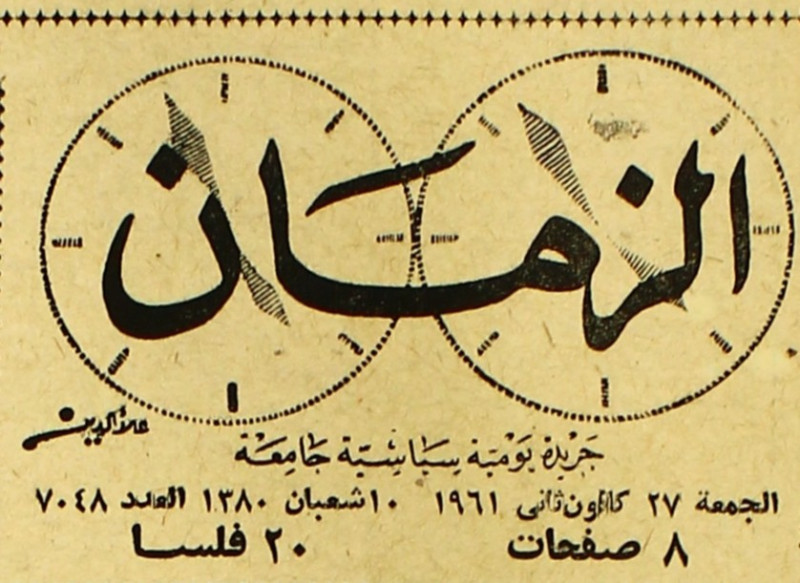 الزمان
علاء الدين
جَريدة يَوميَة سيَاسيَّة جَامِعَة
الجمعة ٢٧ كانون ثانى ١٩٦١ ١٠ شعبان ١٣٨٠ العدد ٧٠٤٨
٨ صفحات ٢٠ فلسا